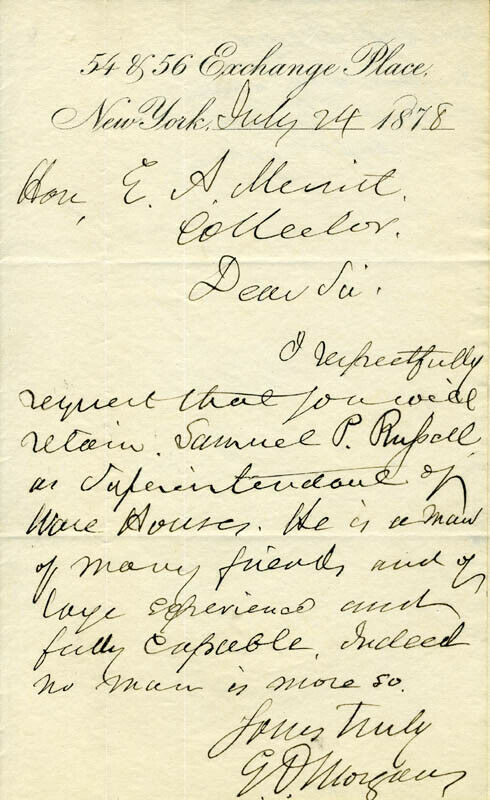 54 & 56 Exchange Place.
New York, July 24 1878
Hon, E. A. Merritt.
Collector.
Dear Sir.
I respectfully
request that you will
retain Samuel P. Russell
as Superintendant of
Ware Houses. He is a man
of many friends and of
large experience and
fully capable. Indeed
no man is more so.
Yours Truly
E. D. Morgan